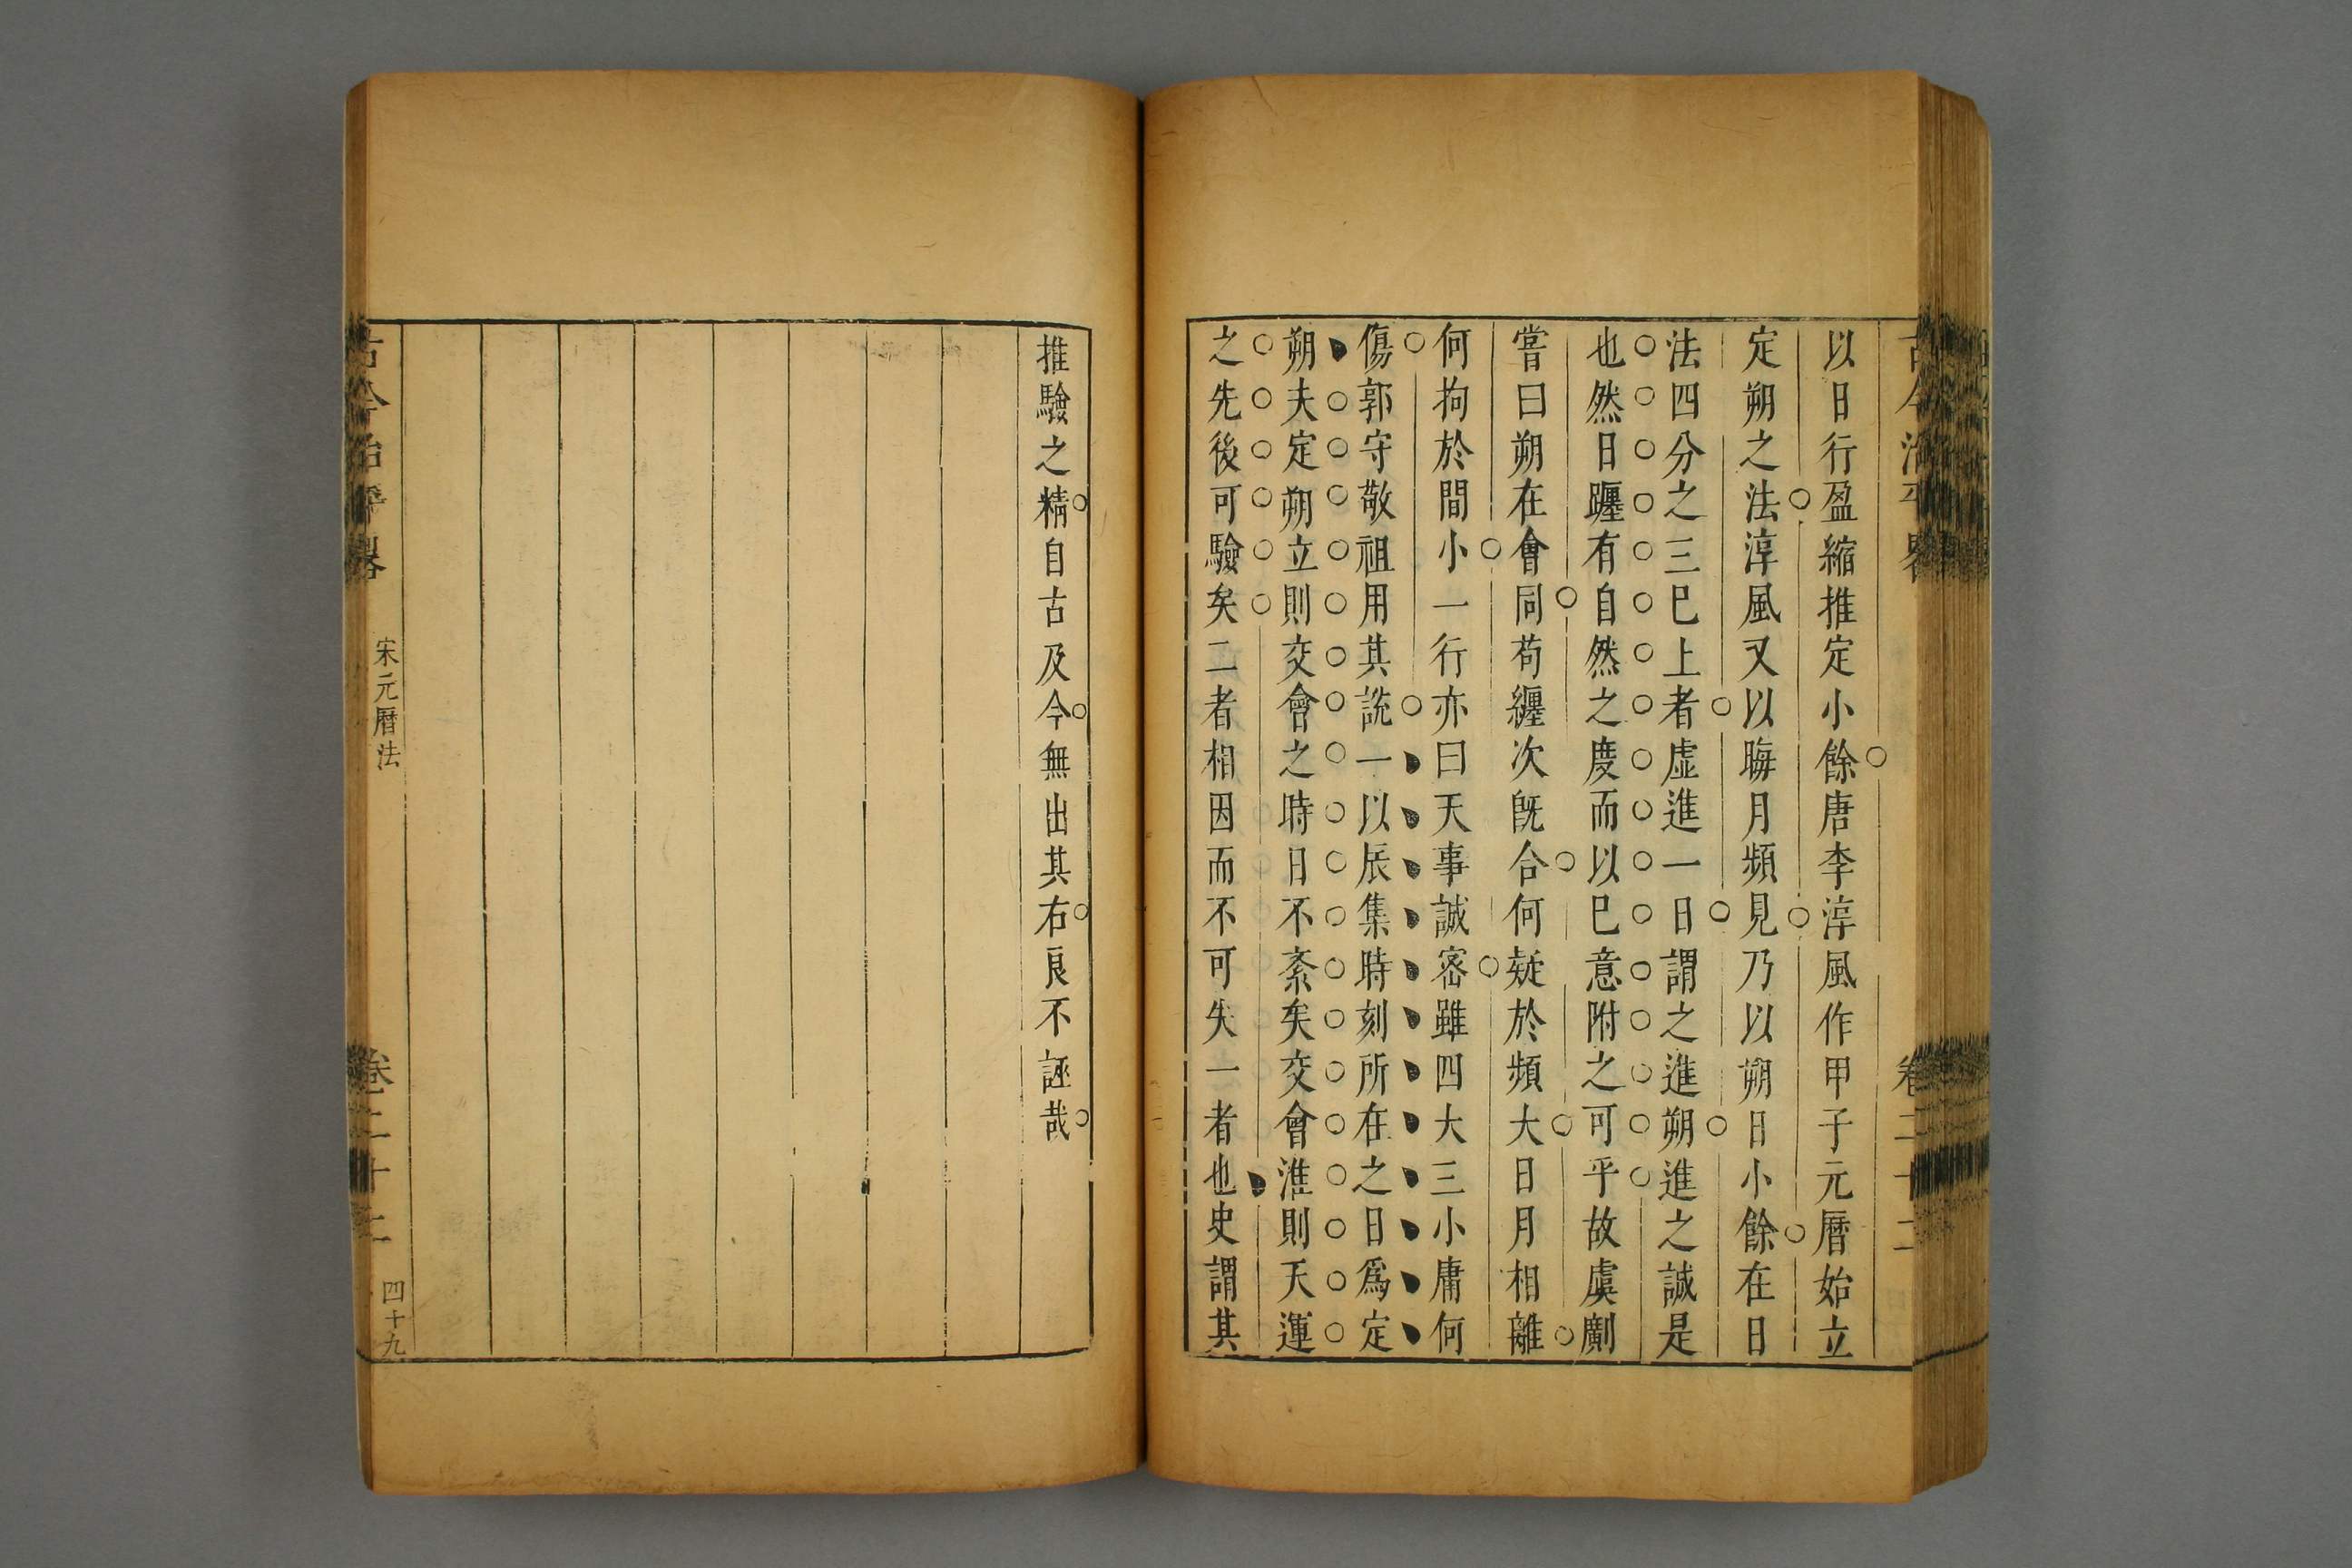 以日行盈縮推定小餘唐李淳風作甲子元曆始立
定朔之法淳風又以晦月頻見乃以朔日小餘在日
法四分之三巳上者虛進一日謂之進朔進之誠是
也然日躔有自然之度而以巳意附之可乎故虞𠠎
嘗曰朔在會同苟纏次旣合何疑於頻大日月相離
何拘於間小一行亦曰天事誠密雖四大三小庸何
傷郭守敬祖用其說一以辰集時刻所在之日爲定
朔夫定朔立則交會之時日不紊矣交會準則天運
之先後可驗矣二者相因而不可失一者也史謂其
推驗之精自古及今無出其右良不誣哉
古今治平畧
宋元曆法
卷二十二
四十九